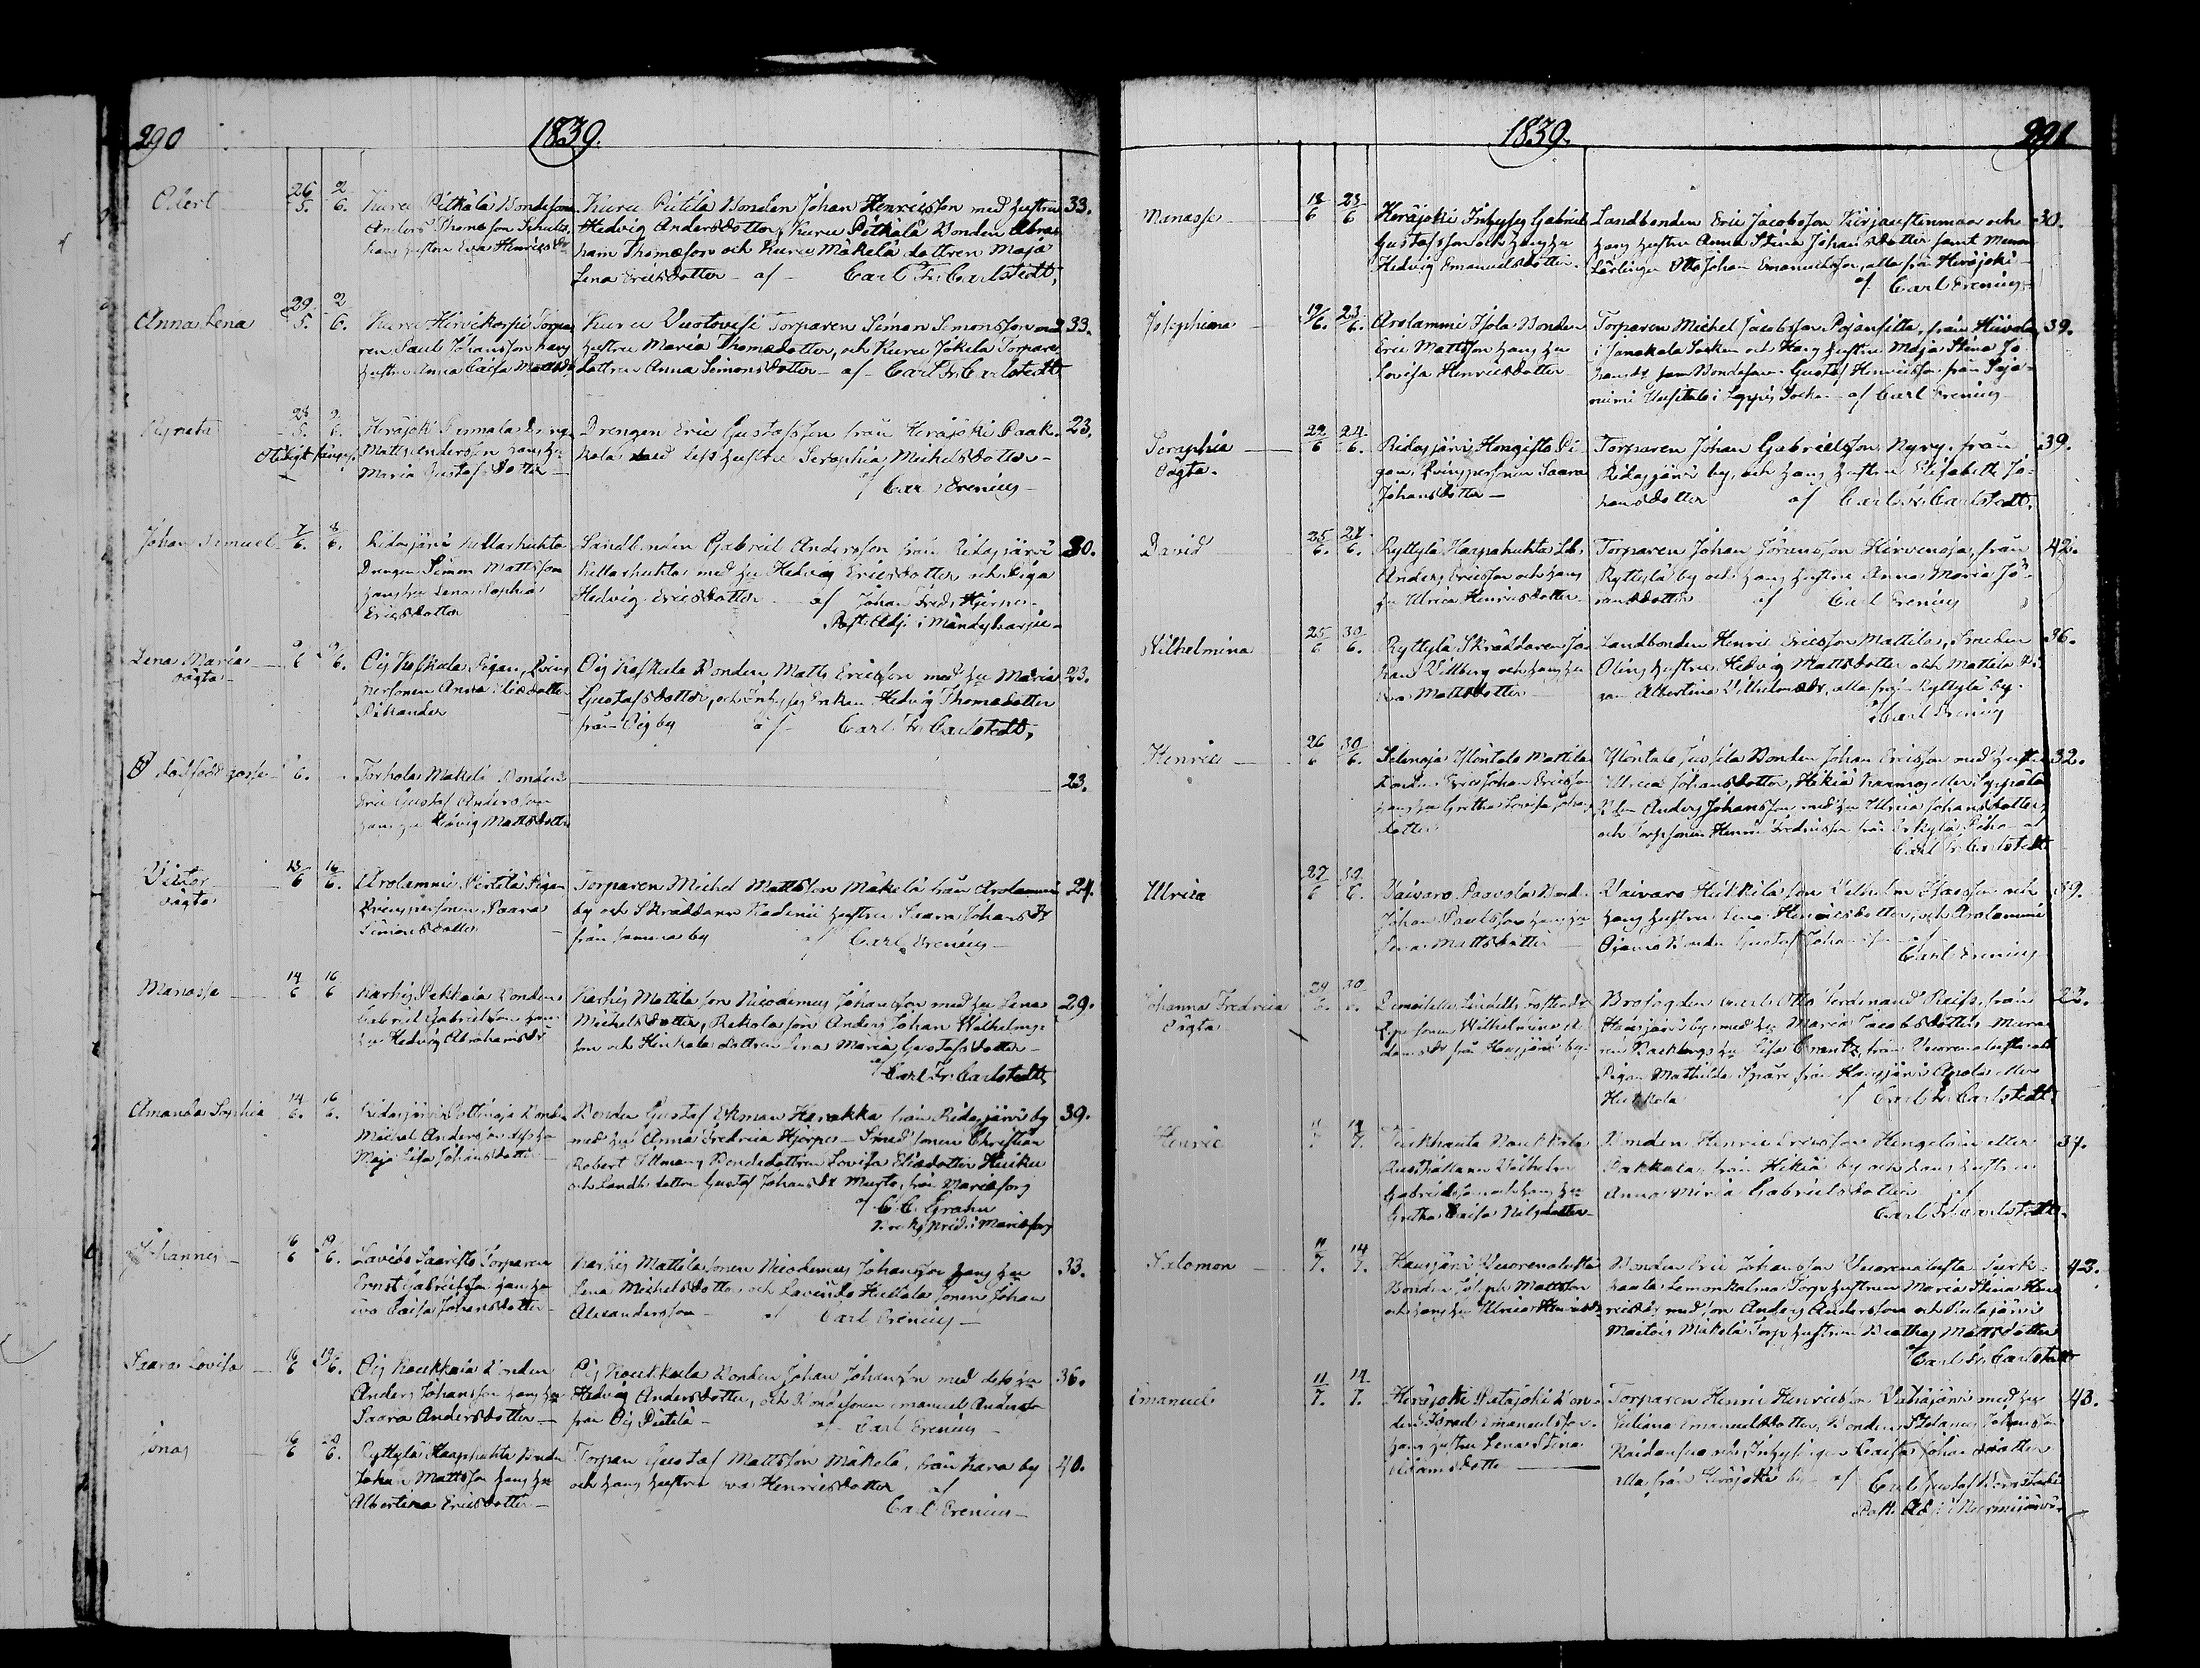 290
1839.
Edert
26/5. 2/6.
Kuru Pätkälä Bondesonen
Anders Thomsson Schultz,
hans hustru Eva Henricsdr
Kuru Pietilä Bonden Johan Henricsson med hustru
Hedvig Andersdotter, Kuru Pätkälä Bonden Abra-
ham Thomasson och Kuru Mäkelä dottren Maja
Lena Ericsdotter – af – Carl Fr. Carlstedt,
33.
Anna Lena
29/5. 2/6.
Kuru Hirvikorpi Torpa-
ren Paul Johansson hans
hustru Anna Caisa Mattsdr
Kuru Torparen Simon Simonsson med
hustru Maria Thomædotter, och Kuru Jokela Torpare
dottren Anna Simonsdotter – af – Carl Fr. Carlstedt
33.
Renata
28/5. 2/6.
Oäligt
Heräjoki Dreng
Matts Andersson hans hu
Maria Gustafsdotter –
Drengen Eric Gustafsson från Heräjoki Paak-
kola med dess hustru Seraphia Michelsdotter –
af Carl Erenius –
23.
Johan Samuel
7/6. 8/6.
Ridasjärvi
Drengen Simon Mattsson
hans hu Lena Sophia
Ericsdotter
Landbonden Gabriel Andersson från Ridasjärvi
med hu Hedvig Ericsdotter och Piga
Hedvig Ericsdotter af Johan Fredr. Hjerpe –
Past. Adj. i Mändyharju –
30.
Lena Maria
oägta –
9/6 9/6.
Oijs Koskula Pigan, Qvins
personen Anna Elisdotter
Oijs Koskula Bonden Matts Ericsson med hu Maria
Gustafsdotter, och Inhyses Enkan Hedvig Thomædotter
från Oijs by af – Carl Fr. Carlstedt,
23.
Et dödfödt gosse
6.
Torhola Mäkelä Bonden
Eric Gustaf Andersson
hans hu Hedvig Mattsdotter
23.
Victor
oägta
13/6 16/6.
Arolammi Pertilä Pigan
Qvinspersonen Saara
Simonsdotter
Torparen Michel Mattsson Mäkelä från Arolammi
by och Skräddaren Kadenii hustru Saara Johansdr
från samma by af Carl Erenius –
24.
Manasse
14/6 16/6
Karhis Pekkala Bonden
Gabriel Gabrielsson hans
hu Hedvig Abrahamsdr
Karhis Mattila son Nicodemus Johansson med hu Lena
Michelsdotter, Rekola son Anders Johan Wilhelms-
son och Heikala dottren Lena Maria Gustafsdotter –
af Carl Fr. Carlstedt,
29.
Amanda Sophia
14/6. 16/6.
Ridasjärvi Bonden
Michel Andersson dess hu
Maja Lisa Johansdotter
Bonden Gustaf Ekman Harakka från Ridasjärvi by
med hu Anna Fredrica Hjerpe – Smed sonen Christian
Robert Ullman, Bondedottren Lovisa Elisdotter Heiku
och Landb. dotter Gustaf Johansdr från Mariefors
af C. C. Grahn
Bruks Pred. i Mariefors
39.
Johannes
16/6 19/6.
Lavido Saaristo Torparen
Ernst Gabrielsson hans hu
Eva Caisa Johansdotter
Karhis Mattila sonen Nicodemus Johansson hans hu
Lena Michelsdotter och Lavindo Heikkala sonen Johan
Alexandersson – af Carl Erenius –
33.
Saara Lovisa
16/6 19/6.
Oijs Koukkula Bonden
Anders Johansson hans hu
Saara Andersdotter –
Oijs Koukkula Bonden Johan Johansson med dess hu
Hedvig Andersdotter, och Bondesonen Emanuel Andersson
från Oijs Pietilä – af Carl Erenius –
36.
Jonas
16/6 20/6.
Ryttylä Haapahuhta Bonden
Johan Mattsson hans hu
Albertina Ericsdotter –
Torparen Gustaf Mattsson Mäkelä, från Kara by
och hans hustru Eva Henricsdotter af
Carl Erenius –
40.
1839.
291
Manasse
18/6 23/6
Heräjoki Inhyses Gabriel
Gustafsson och hans hu
Hedvig Emanuelsdotter.
Landbonden Eric Jacobsson och
hans hustru Anna Stina Johansdotter samt
Lärlingen Otto Johan Emanuelsson, alla från Heräjoki –
af Carl Erenius –
30.
Josephina
19/6. 23/6.
Arolammi Isola Bonden
Eric Mattsson hans hu
Lovisa Henricsdotter
Torparen Michel Jacobsson från Hiivola
i Janakala Socken och hans hustru Maja Stina Jo-
hansdr samt Bondesonen Gustaf Henricsson från Saja-
niemi Uusitalo i Loppis Socken – af Carl Erenius –
39.
Seraphia
oägta.
22/6 24/6.
Ridasjärvi Hongisto Pi-
gan, Qvinspersonen Saara
Johansdotter –
Torparen Johan Gabrielsson Nyry, från
Ridasjärvi by, och hans hustru Elisabeth Jo-
hansdotter af Carl Fr. Carlstedt.
39.
David
25/6. 27/6.
Ryttylä Haapahuhta Lb.
Anders Ericsson och hans
hu Ulrica Henricsdotter –
Torparen Johan Jöransson Hirvenoja, från
Ryttylä by och hans hustru Anna Maria Jö-
ransdotter af Carl Erenius
42.
Wilhelmina
25/6 30/6.
Ryttylä Skräddaren Jo-
han Widberg och hans hu
Eva Mattsdotter
Landbonden Henric Ericsson Mattila, Smeden
Olins hustru Hedvig Mattsdotter och Mattila Pi-
gan Albertina Wilhelmsdr, alla från Ryttylä by.
af Carl Erenius
36.
Henric
26/6 30/6.
Selänoja Ylöntalo Mattila
Bonden Eric Johan Ericsson
hans hu Gretha Lovisa Johans-
dotter
Ylöntalo Jussila Bonden Johan Ericsson med hustru
Ulrica Johansdotter, Hikiä
Bdn Anders Johansson med hu Ulrica Johansdotter,
och Torpsonen Henric Fredricsson från – af
Carl Fr. Carlstedt
32.
Ulrica
27/6 30/6.
Vaivaro Paavola Bond.
Johan Paulsson hans hu
Lena Mattsdotter –
Vaivaro Heikkilä son Wilhelm Isacsson och
hans hustru Lena Henricsdotter, och Arolammi
Ojama Bonden Gustaf Johansson –
Carl Erenius
39.
Johanna Fredrica
oägta
29/6. 30/6.
Wilhelmina A-
damsdr från Hausjärvi by –
Brofogden Carl Otto Ferdinand från
Hausjärvi by, med hu Maria Jacobsdotter, Mura-
ren Backbergs hu Lisa från och
Pigan Mathilda från Hausjärvi Anola eller
Heikkola af Carl Fr. Carlstedt,
22.
Henric
11/7. 14/7.
Turkhauta Koukkola
Rusthållaren Wilhelm
Gabrielsson och hans hu
Gretha Caisa Nilsdotter
Bonden Henric Ericsson Hongeloin eller
Pakkala, från Hikiä by och hans hustru
Anna Maria Gabrielsdotter af
Carl Fr. Carlstedt.
37.
Salomon
11/7. 14/7.
Hausjärvi Vuorenalusta
Bonden Joseph Mattsson
och hans hu Ulrica Henricsdr
Bonden Eric Johansson Vuorenalusta Turk-
hauta Lemonkulma Torp hustrun Maria Stina Hen-
ricsdr med son Anders Andersson och Ridasjärvi
Maitois Mäkelä Torp hustrun Beatha Mattsdotter
af Carl Fr. Carlstedt
43.
Emanuel
11/7. 14/7.
Heräjoki Patajoki Bon-
den Israel Emanuelsson
hans hustru Lena Stina
Adamsdotter
Torparen Henric Henricsson Vähäjärvi med hu
Juliana Emanuelsdotter, Bonden Stefanus Johansson
och Inhysingen Caisa Johansdotter
alla från Heräjoki by – af Carl Gustaf
Past. Adj. i Nurmijärvi.
43.